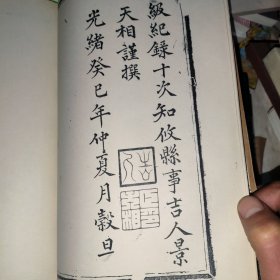 級紀錄十次知攸縣事吉人景
天相謹撰
光緒癸巳年仲夏月穀旦
吉人